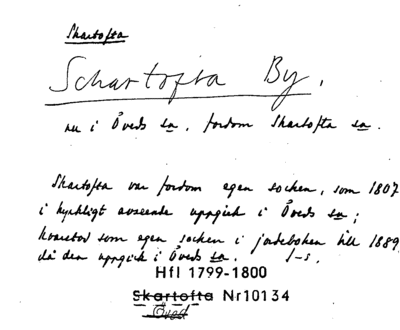 Skartofta
Schartofta By.
nu i Öveds sn, fordom Skartofta sn.
Skartofta var fordom egen socken, som 1807
i kyrkligt avseende uppgick i Öveds sn;
kvarstod som egen socken i jordeboken till 1889,
då den uppgick i Öveds sn. J-s.
Hfl 1799-1800
Skartofta Nr10134
Öved